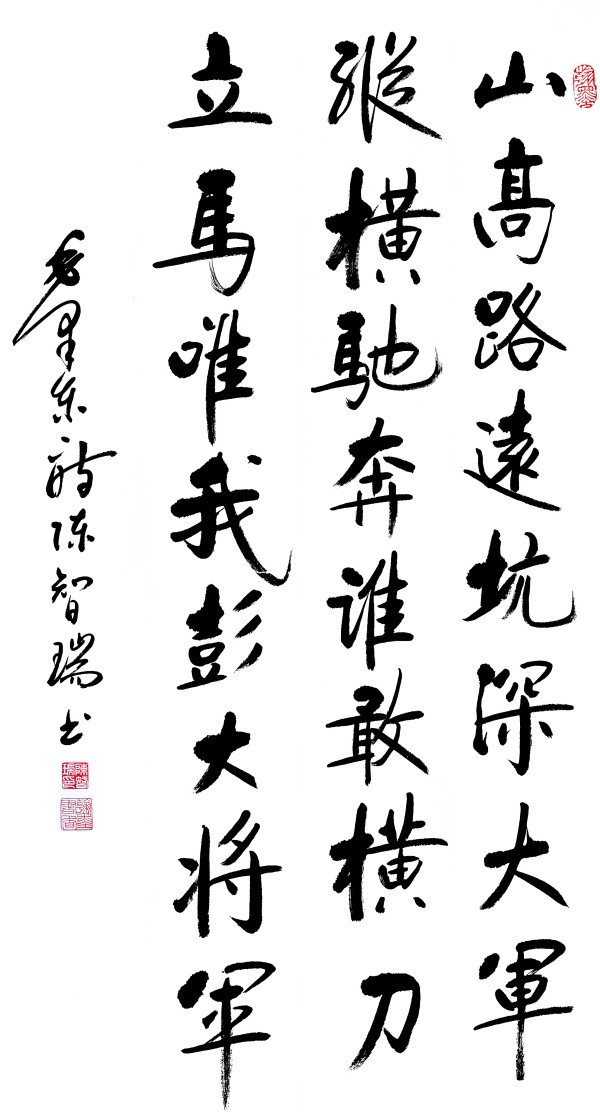 山高路遠坑深大軍
縱橫馳奔誰敢橫刀
立馬唯我彭大將軍
毛澤东詩陈智瑞书